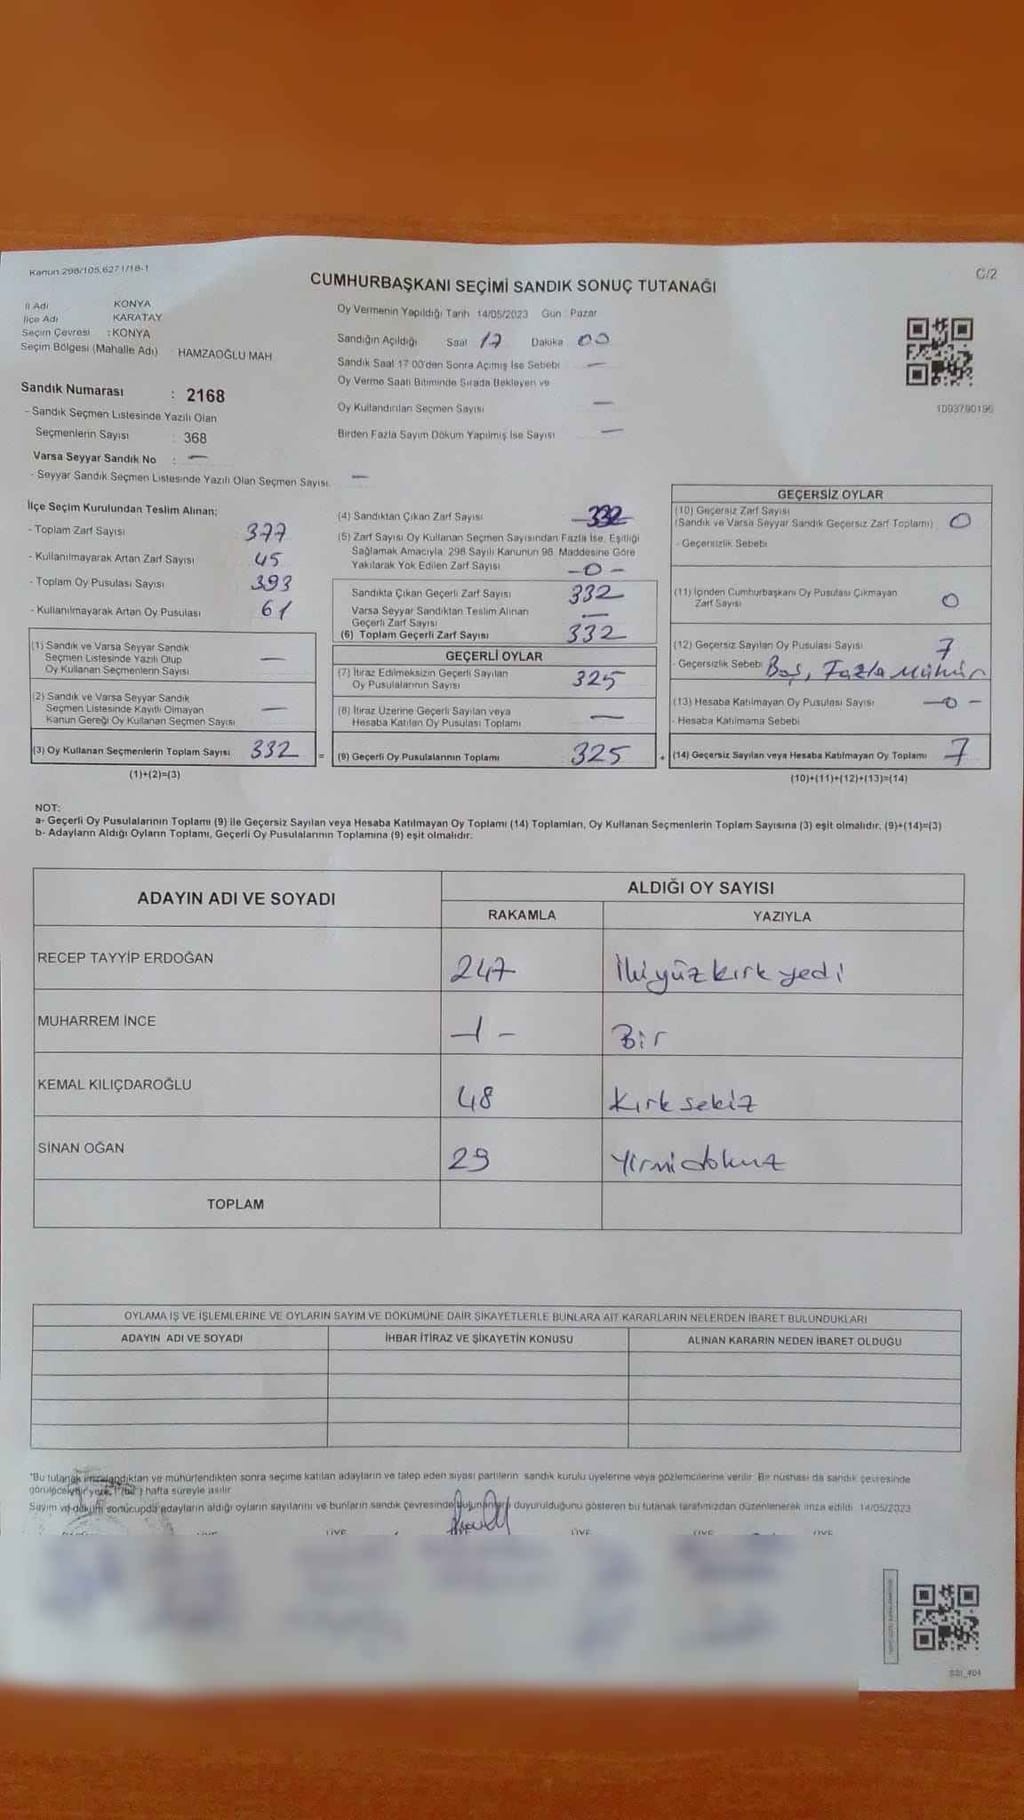 Kanun 298/105,6271/18-1
C/2
CUMHURBAŞKANI SEÇİMİ SANDIK SONUÇ TUTANAĞI
İl Adı KONYA
İlçe Adı KARATAY
Seçim Çevresi : KONYA
Seçim Bölgesi (Mahalle Adı) HAMZAOĞLU MAH
Sandık Numarası : 2168
- Sandık Seçmen Listesinde Yazılı Olan
Seçmenlerin Sayısı : 368
Varsa Seyyar Sandık No : —
- Seyyar Sandık Seçmen Listesinde Yazılı Olan Seçmen Sayısı —
Oy Vermenin Yapıldığı Tarih 14/05/2023 Gün Pazar
Sandığın Açıldığı Saat 17 Dakika 00
Sandık Saat 17 00'den Sonra Açımış İse Sebebi —
Oy Verme Saati Bitiminde Sırada Bekleyen ve
Oy Kullandırılan Seçmen Sayısı —
Birden Fazla Sayım Döküm Yapılmış İse Sayısı —
1093790196
İlçe Seçim Kurulundan Teslim Alınan;
- Toplam Zarf Sayısı 377
- Kullanılmayarak Artan Zarf Sayısı 45
- Toplam Oy Pusulası Sayısı 393
- Kullanılmayarak Artan Oy Pusulası 61
(1) Sandık ve Varsa Seyyar Sandık
Seçmen Listesinde Yazılı Olup
Oy Kullanan Seçmenlerin Sayısı —
(2) Sandık ve Varsa Seyyar Sandık
Seçmen Listesinde Kayıtlı Olmayan
Kanun Gereği Oy Kullanan Seçmen Sayısı —
(3) Oy Kullanan Seçmenlerin Toplam Sayısı 332 =
(1)+(2)=(3)
(4) Sandıktan Çıkan Zarf Sayısı 332
(5) Zarf Sayısı Oy Kullanan Seçmen Sayısından Fazla İse, Eşitliği
Sağlamak Amacıyla, 298 Sayılı Kanunun 98. Maddesine Göre
Yakılarak Yok Edilen Zarf Sayısı -0-
Sandıkta Çıkan Geçerli Zarf Sayısı 332
Varsa Seyyar Sandıktan Teslim Alınan
Geçerli Zarf Sayısı —
(6) Toplam Geçerli Zarf Sayısı 332
GEÇERLİ OYLAR
(7) İtiraz Edilmeksizin Geçerli Sayılan
Oy Pusulalarının Sayısı 325
(8) İtiraz Üzerine Geçerli Sayılan veya
Hesaba Katılan Oy Pusulası Toplamı —
(9) Geçerli Oy Pusulalarının Toplamı 325 +
GEÇERSİZ OYLAR
(10) Geçersiz Zarf Sayısı
(Sandık ve Varsa Seyyar Sandık Geçersiz Zarf Toplamı) 0
- Geçersizlik Sebebi
(11) İçinden Cumhurbaşkanı Oy Pusulası Çıkmayan
Zarf Sayısı 0
(12) Geçersiz Sayılan Oy Pusulası Sayısı 7
- Geçersizlik Sebebi Boş, Fazla Mühür
(13) Hesaba Katılmayan Oy Pusulası Sayısı -0-
- Hesaba Katılmama Sebebi
(14) Geçersiz Sayılan veya Hesaba Katılmayan Oy Toplamı 7
(10)+(11)+(12)+(13)=(14)
NOT:
a- Geçerli Oy Pusulalarının Toplamı (9) ile Geçersiz Sayılan veya Hesaba Katılmayan Oy Toplamı (14) Toplamları, Oy Kullanan Seçmenlerin Toplam Sayısına (3) eşit olmalıdır. (9)+(14)=(3)
b- Adayların Aldığı Oyların Toplamı, Geçerli Oy Pusulalarının Toplamına (9) eşit olmalıdır.
ADAYIN ADI VE SOYADI
ALDIĞI OY SAYISI
RAKAMLA YAZIYLA
RECEP TAYYİP ERDOĞAN 247 İkiyüzkırkyedi
MUHARREM İNCE -1- Bir
KEMAL KILIÇDAROĞLU 48 Kırksekiz
SİNAN OĞAN 29 Yirmidokuz
TOPLAM
OYLAMA İŞ VE İŞLEMLERİNE VE OYLARIN SAYIM VE DÖKÜMÜNE DAİR ŞİKAYETLERLE BUNLARA AİT KARARLARIN NELERDEN İBARET BULUNDUKLARI
ADAYIN ADI VE SOYADI İHBAR İTİRAZ VE ŞİKAYETİN KONUSU ALINAN KARARIN NEDEN İBARET OLDUĞU
*Bu tutanak imzalandıktan ve mühürlendikten sonra seçime katılan adayların ve talep eden siyasi partilerin sandık kurulu üyelerine veya gözlemcilerine verilir. Bir nüshası da sandık çevresinde
görülecek bir yere, 1 (bir) hafta süreyle asılır
Sayım ve döküm sonucunda adayların aldığı oyların sayılarını ve bunların sandık çevresinde bulunanlara duyurulduğunu gösteren bu tutanak tarafımızdan düzenlenerek imza edildi. 14/05/2023
ÜYE ÜYE ÜYE ÜYE